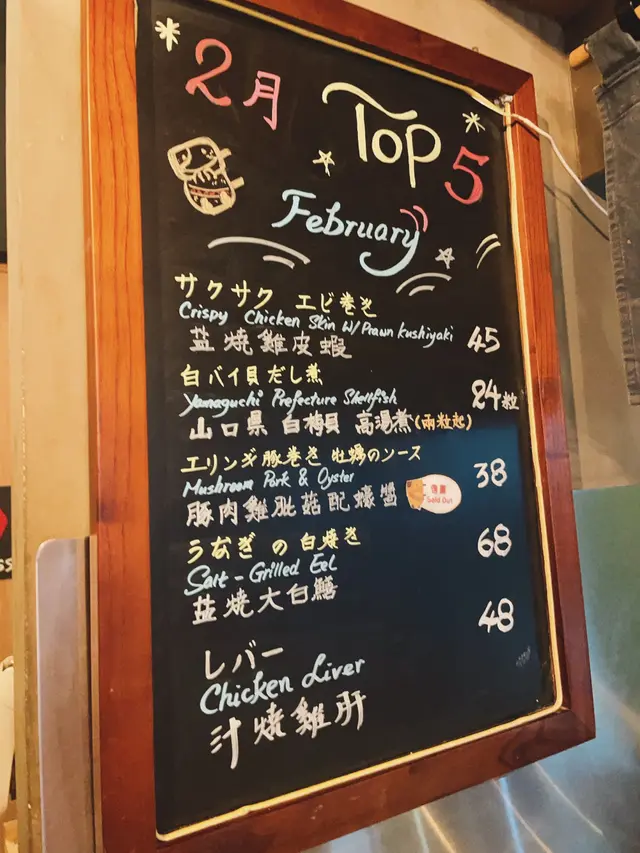 2月 Top 5
February
サクサク エビ巻き
Crispy Chicken Skin W/Prawn Kushiyaki 45
盐燒雞皮蝦
白バイ貝だし煮
Yamaguchi Prefecture Shellfish 24粒
山口県 白梅貝 高湯煮(兩粒起)
エリンギ豚巻き 牡蠣のソース
Mushroom Pork & Oyster 38
豚肉雞髀菇配蠔醬
Sold Out
うなぎの白焼き
Salt-Grilled Eel 68
盐燒大白鱔
48
レバー
Chicken Liver
汁燒雞肝